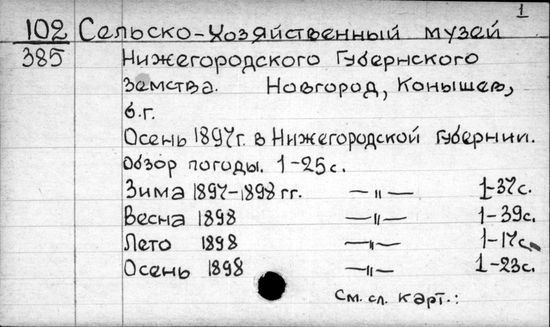 1
102 Сельско-хозяйственный музей
385 Нижегородского Губернского
Земства. Новгород, Конышев,
б.г.
Осень 1897г. в Нижегородской губернии.
Обзор погоды. 1-25с.
Зима 1897-1898 гг. —"— 1-37с.
Весна 1898 —"— 1-39с.
Лето 1898 —"— 1-17с.
Осень 1898 —"— 1-23с.
См. сл. карт.: